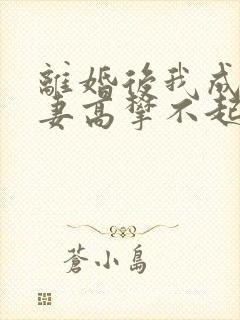 離婚後我成
妻高攀不起
蒼小島